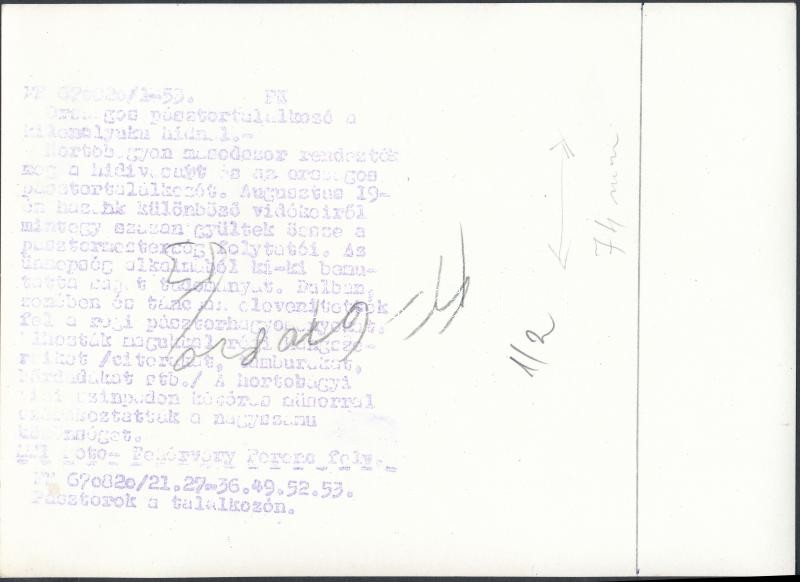 67o82o/1-53. FK
Országos pásztortalálkozó a
kilenclyuku hidnál.-
Hortobágyon másodszor rendezték
meg a hidivásárt és az országos
pásztortalálkozót. Augusztus 19-
én hazánk különböző vidékeiről
mintegy százan gyültek össze a
pásztormesterség folytatói. Az
ünnepség alkalmából ki-ki bemu-
tatta saját tudományát. Dalban,
zenében és táncban elevenitették
fel a régi pásztorhagyományokat.
Elhozták magukkal régi hangsze-
reiket /citerákat, tamburákat,
stb./ A hortobágyi
vizi szinpadon kétórás műsorral
szórakoztatták a nagyszámu
közönséget.
MTI Foto- Fehérváry Ferenc felv.
67o82o/21.27-36.49.52.53.
Pásztorok a találkozón.
1/2
74 mm